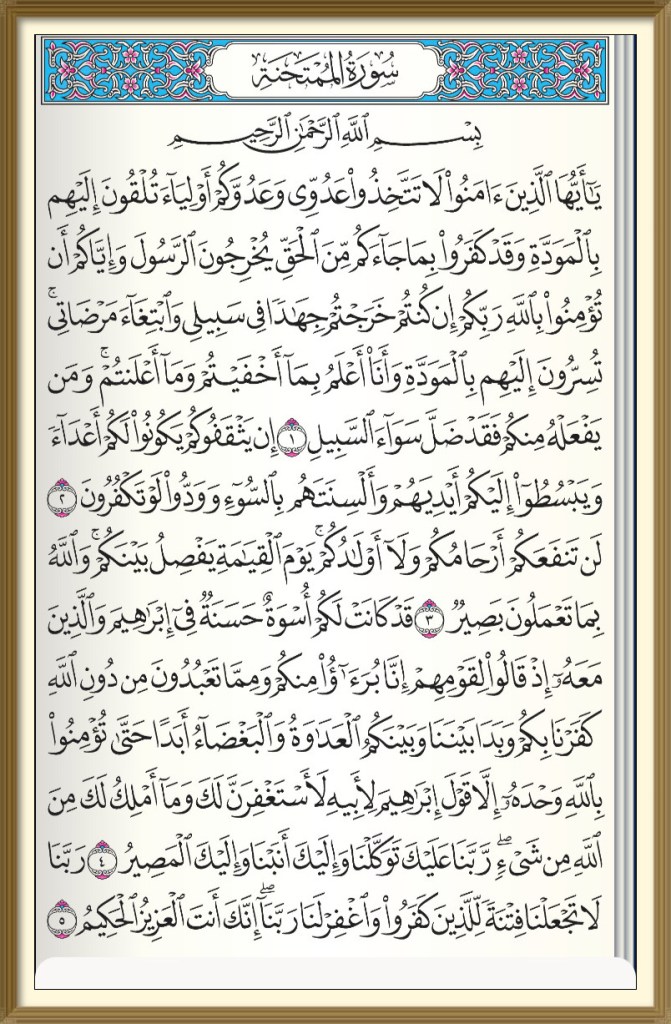 سُورَةُ المُمْتَحنَةِ
بِسْمِ ٱللَّهِ ٱلرَّحْمَٰنِ ٱلرَّحِيمِ
يَٰٓأَيُّهَا ٱلَّذِينَ ءَامَنُوا۟ لَا تَتَّخِذُوا۟ عَدُوِّى وَعَدُوَّكُمْ أَوْلِيَآءَ تُلْقُونَ إِلَيْهِم
بِٱلْمَوَدَّةِ وَقَدْ كَفَرُوا۟ بِمَا جَآءَكُم مِّنَ ٱلْحَقِّ يُخْرِجُونَ ٱلرَّسُولَ وَإِيَّاكُمْ أَن
تُؤْمِنُوا۟ بِٱللَّهِ رَبِّكُمْ إِن كُنتُمْ خَرَجْتُمْ جِهَٰدًا فِى سَبِيلِى وَٱبْتِغَآءَ مَرْضَاتِى ۚ
تُسِرُّونَ إِلَيْهِم بِٱلْمَوَدَّةِ وَأَنَا۠ أَعْلَمُ بِمَآ أَخْفَيْتُمْ وَمَآ أَعْلَنتُمْ ۚ وَمَن
يَفْعَلْهُ مِنكُمْ فَقَدْ ضَلَّ سَوَآءَ ٱلسَّبِيلِ ١ إِن يَثْقَفُوكُمْ يَكُونُوا۟ لَكُمْ أَعْدَآءً
وَيَبْسُطُوٓا۟ إِلَيْكُمْ أَيْدِيَهُمْ وَأَلْسِنَتَهُم بِٱلسُّوٓءِ وَوَدُّوا۟ لَوْ تَكْفُرُونَ ٢
لَن تَنفَعَكُمْ أَرْحَامُكُمْ وَلَآ أَوْلَٰدُكُمْ ۚ يَوْمَ ٱلْقِيَٰمَةِ يَفْصِلُ بَيْنَكُمْ ۚ وَٱللَّهُ
بِمَا تَعْمَلُونَ بَصِيرٌ ٣ قَدْ كَانَتْ لَكُمْ أُسْوَةٌ حَسَنَةٌ فِىٓ إِبْرَٰهِيمَ وَٱلَّذِينَ
مَعَهُۥٓ إِذْ قَالُوا۟ لِقَوْمِهِمْ إِنَّا بُرَءَٰٓؤُا۟ مِنكُمْ وَمِمَّا تَعْبُدُونَ مِن دُونِ ٱللَّهِ
كَفَرْنَا بِكُمْ وَبَدَا بَيْنَنَا وَبَيْنَكُمُ ٱلْعَدَٰوَةُ وَٱلْبَغْضَآءُ أَبَدًا حَتَّىٰ تُؤْمِنُوا۟
بِٱللَّهِ وَحْدَهُۥٓ إِلَّا قَوْلَ إِبْرَٰهِيمَ لِأَبِيهِ لَأَسْتَغْفِرَنَّ لَكَ وَمَآ أَمْلِكُ لَكَ مِنَ
ٱللَّهِ مِن شَىْءٍ ۖ رَّبَّنَا عَلَيْكَ تَوَكَّلْنَا وَإِلَيْكَ أَنَبْنَا وَإِلَيْكَ ٱلْمَصِيرُ ٤ رَبَّنَا
لَا تَجْعَلْنَا فِتْنَةً لِّلَّذِينَ كَفَرُوا۟ وَٱغْفِرْ لَنَا رَبَّنَآ ۖ إِنَّكَ أَنتَ ٱلْعَزِيزُ ٱلْحَكِيمُ ٥